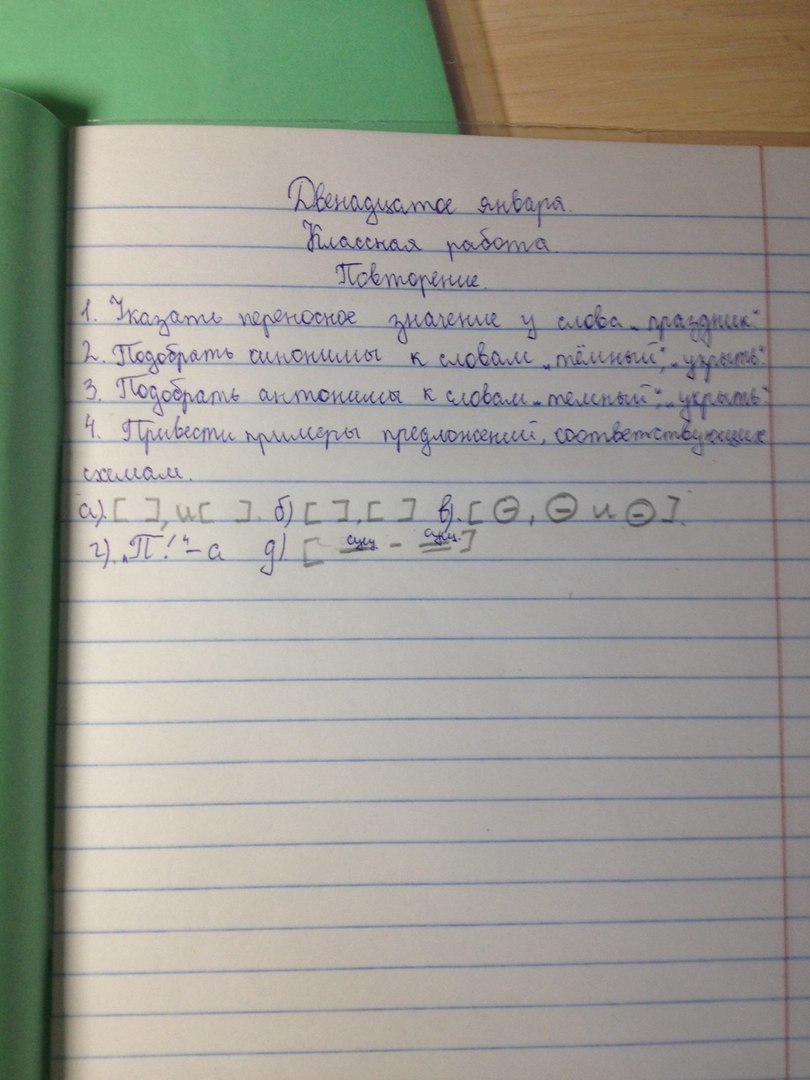 Двенадцатое января.
Классная работа.
Повторение.
1. Указать переносное значение у слова „праздник“.
2. Подобрать синонимы к словам „тёмный“, „укрыть“.
3. Подобрать антонимы к словам „темный“, „укрыть“.
4. Привести примеры предложений, соответствующих
схемам.
а). [ ], и [ ]. б) [ ], [ ] в). [ ⊖, ⊖ и ⊖ ].
г). „П!“ – а д). [ сущ. – сущ. ]